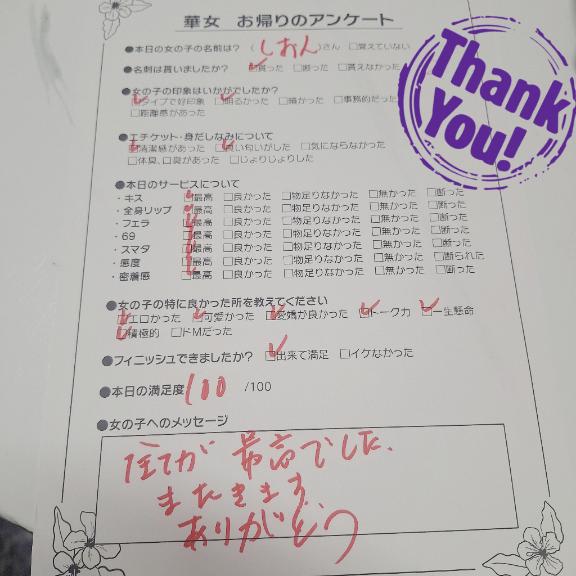 華女 お帰りのアンケート
●本日の女の子の名前は? (しおん)さん □覚えていない
●名刺は貰いましたか? □貰った □断った □貰えなかった
●女の子の印象はいかがでしたか?
□タイプで好印象 □明るかった □暗かった □事務的だった
□距離感があった
●エチケット・身だしなみについて
□清潔感があった □良い匂いがした □気にならなかった
□体臭、口臭があった □じょりじょりした
●本日のサービスについて
・キス □最高 □良かった □物足りなかった □無かった □断った
・全身リップ □最高 □良かった □物足りなかった □無かった □断った
・フェラ □最高 □良かった □物足りなかった □無かった □断った
・69 □最高 □良かった □物足りなかった □無かった □断った
・スマタ □最高 □良かった □物足りなかった □無かった □断った
・感度 □最高 □良かった □物足りなかった □無かった □断られた
・密着感 □最高 □良かった □物足りなかった □無かった □断った
●女の子の特に良かった所を教えてください
□エロかった □可愛かった □愛嬌が良かった □トーク力 □一生懸命
□積極的 □ドMだった
●フィニッシュできましたか? □出来て満足 □イケなかった
●本日の満足度 100 /100
●女の子へのメッセージ
全てが 最高でした、
またきます
ありがとう
Thank
You!